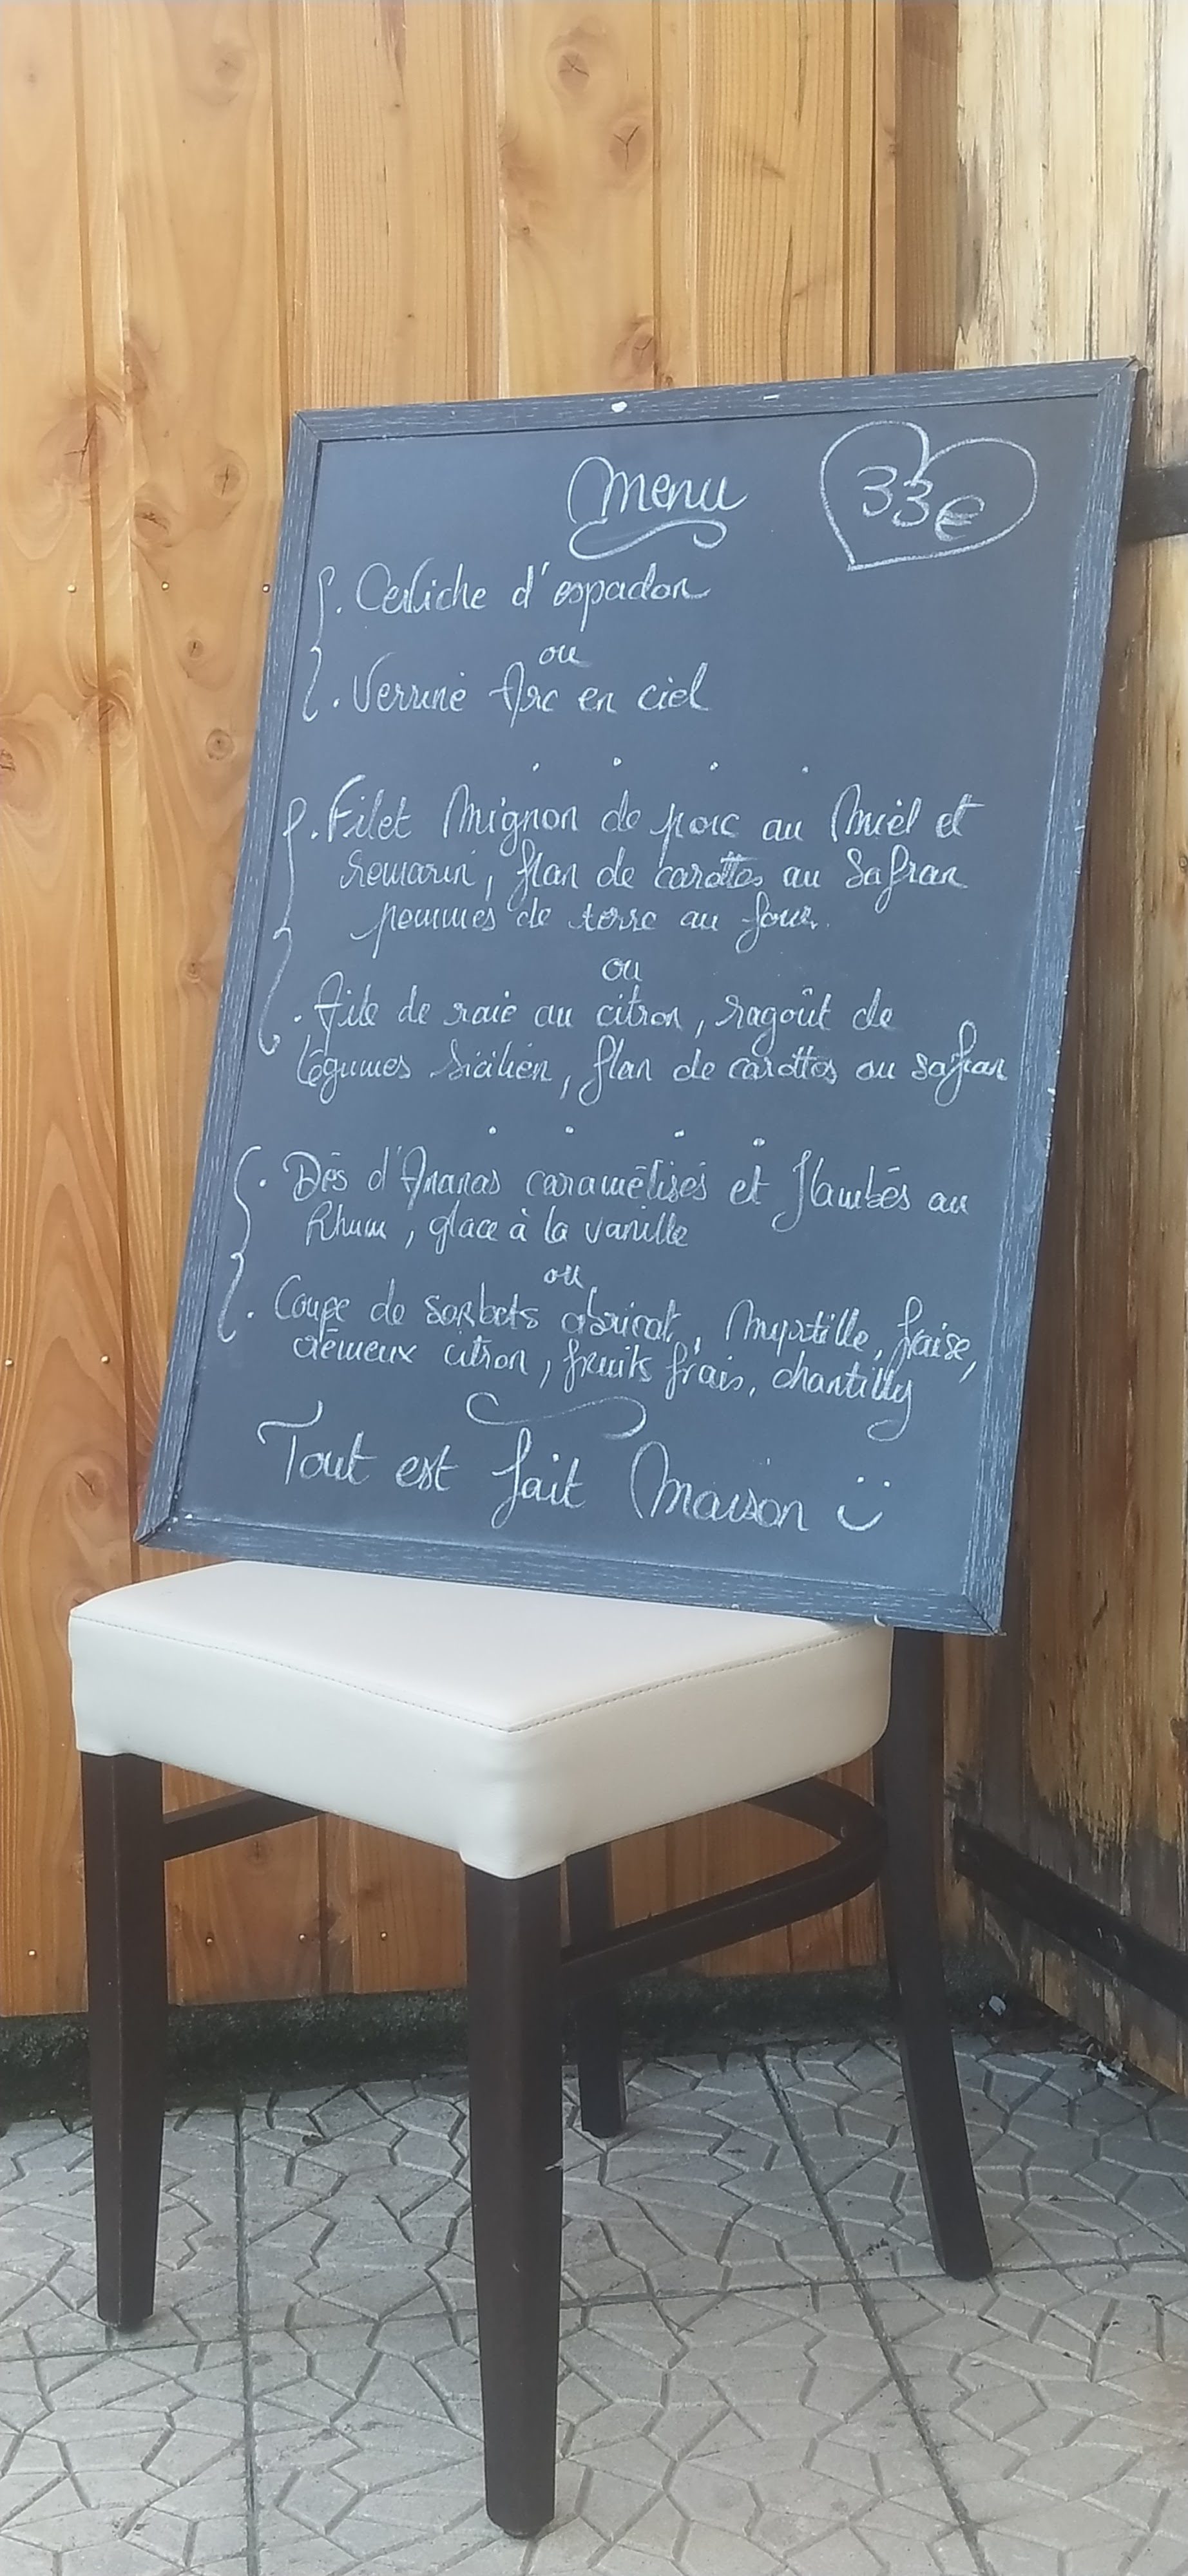 Menu 33€
. Ceviche d'espadon
ou
. Verrine Arc en ciel
. . . .
. Filet Mignon de porc au Miel et
romarin, flan de carottes au Safran
pommes de terre au four.
ou
. Aile de raie au citron, ragoût de
légumes Sicilien, flan de carottes au safran
. . . .
. Dés d'Ananas caramélisés et flambés au
Rhum, glace à la vanille
ou
. Coupe de sorbets abricot, Myrtille, fraise,
crémeux citron, fruits frais, chantilly
Tout est fait Maison :)